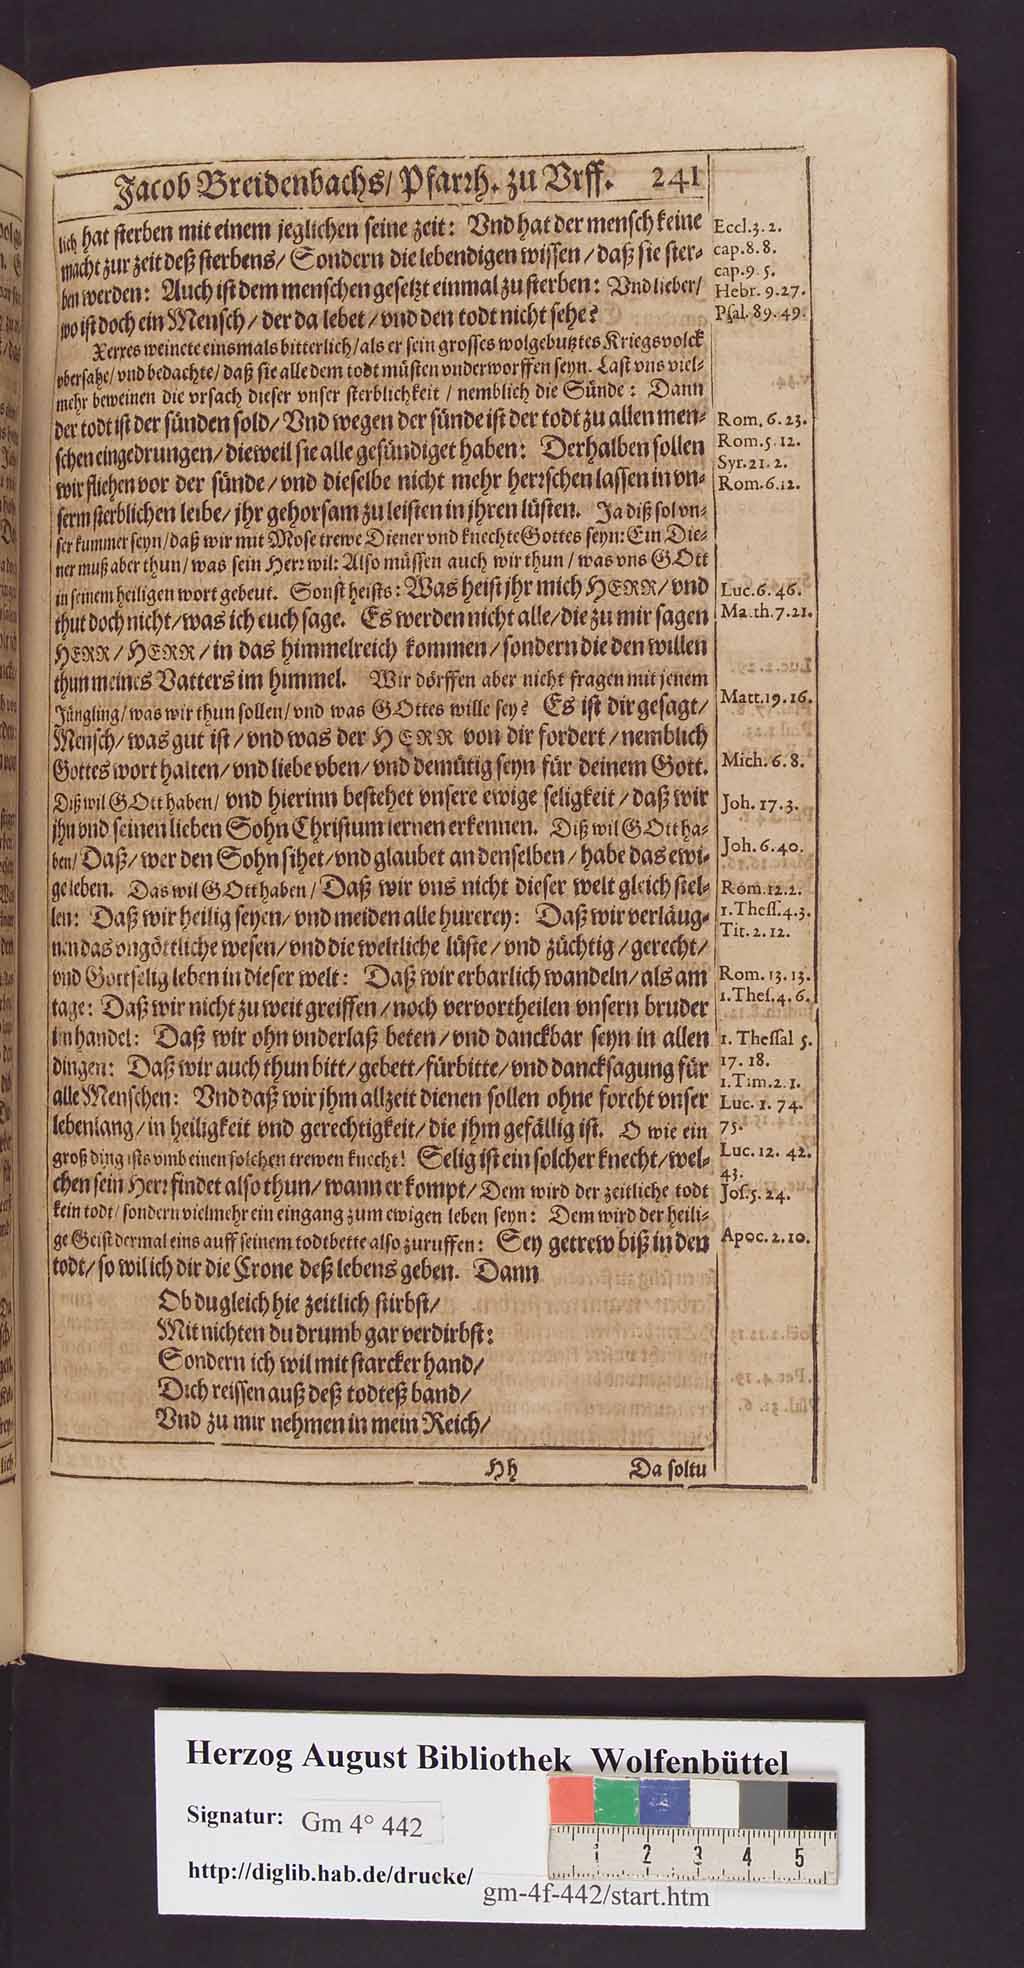 Jacob Breidenbachs/ Pfarrh. zu Vrff. 241
lich hat sterben mit einem jeglichen seine zeit: Vnd hat der mensch keine
macht zur zeit deß sterbens/ Sondern die lebendigen wissen/ daß sie ster-
ben werden: Auch ist dem menschen gesetzt einmal zu sterben: Vnd lieber/
wo ist doch ein Mensch/ der da lebet/ vnd den todt nicht sehe?
Xerxes weinete einsmals bitterlich/ als er sein grosses wolgebutztes Kriegsvolck
vbersahe/ vnd bedachte/ daß sie alle dem todt müsten vnderworffen seyn. Last vns viel-
mehr beweinen die vrsach dieser vnser sterblichkeit/ nemblich die Sünde: Dann
der todt ist der sünden sold/ Vnd wegen der sünde ist der todt zu allen men-
schen eingedrungen/ dieweil sie alle gesündiget haben: Derhalben sollen
wir fliehen vor der sünde/ vnd dieselbe nicht mehr herrschen lassen in vn-
serm sterblichen leibe/ jhr gehorsam zu leisten in jhren lüsten. Ja diß sol vn-
ser kummer seyn/ daß wir mit Mose trewe Diener vnd knechte Gottes seyn: Ein Die-
ner muß aber thun/ was sein Herr wil: Also müssen auch wir thun/ was vns GOtt
in seinem heiligen wort gebeut. Sonst heists: Was heist jhr mich HERR/ vnd
thut doch nicht/ was ich euch sage. Es werden nicht alle/ die zu mir sagen
HERR/ HERR/ in das himmelreich kommen/ sondern die den willen
thun meines Vatters im himmel. Wir dörffen aber nicht fragen mit jenem
Jüngling/ was wir thun sollen/ vnd was GOttes wille sey? Es ist dir gesagt/
Mensch/ was gut ist/ vnd was der HERR von dir fordert/ nemblich
Gottes wort halten/ vnd liebe vben/ vnd demütig seyn für deinem Gott.
Diß wil GOtt haben/ vnd hierinn bestehet vnsere ewige seligkeit/ daß wir
jhn vnd seinen lieben Sohn Christum lernen erkennen. Diß wil GOtt ha-
ben/ Daß/ wer den Sohn sihet/ vnd glaubet an denselben/ habe das ewi-
ge leben. Das wil GOtt haben/ Daß wir vns nicht dieser welt gleich stel-
len: Daß wir heilig seyen/ vnd meiden alle hurerey: Daß wir verläug-
nen das vngöttliche wesen/ vnd die weltliche lüste/ vnd züchtig/ gerecht/
vnd Gottselig leben in dieser welt: Daß wir erbarlich wandeln/ als am
tage: Daß wir nicht zu weit greiffen/ noch vervortheilen vnsern bruder
im handel: Daß wir ohn vnderlaß beten/ vnd danckbar seyn in allen
dingen: Daß wir auch thun bitt/ gebett/ fürbitte/ vnd dancksagung für
alle Menschen: Vnd daß wir jhm allzeit dienen sollen ohne forcht vnser
lebenlang/ in heiligkeit vnd gerechtigkeit/ die jhm gefällig ist. O wie ein
groß ding ists vmb einen solchen trewen knecht! Selig ist ein solcher knecht/ wel-
chen sein Herr findet also thun/ wann er kompt/ Dem wird der zeitliche todt
kein todt/ sondern vielmehr ein eingang zum ewigen leben seyn: Dem wird der heili-
ge Geist dermal eins auff seinem todtbette also zuruffen: Sey getrew biß in den
todt/ so wil ich dir die Crone deß lebens geben. Dann
Ob du gleich hie zeitlich stirbst/
Mit nichten du drumb gar verdirbst:
Sondern ich wil mit starcker hand/
Dich reissen auß deß todteß band/
Vnd zu mir nehmen in mein Reich/
Hh Da soltu
Eccl. 3. 2.
cap. 8. 8.
cap. 9. 5.
Hebr. 9. 27.
Psal. 89. 49.
Rom. 6. 23.
Rom. 5. 12.
Syr. 21. 2.
Rom. 6. 12.
Luc. 6. 46.
Matth. 7. 21.
Matt. 19. 16.
Mich. 6. 8.
Joh. 17. 3.
Joh. 6. 40.
Rom. 12. 2.
1. Thess. 4. 3.
Tit. 2. 12.
Rom. 13. 13.
1. Thes. 4. 6.
1. Thessal 5.
17. 18.
1. Tim. 2. 1.
Luc. 1. 74.
75.
Luc. 12. 42.
43.
Jos. 5. 24.
Apoc. 2. 10.
Herzog August Bibliothek Wolfenbüttel
Signatur: Gm 4° 442
http://diglib.hab.de/drucke/
gm-4f-442/start.htm
1 2 3 4 5